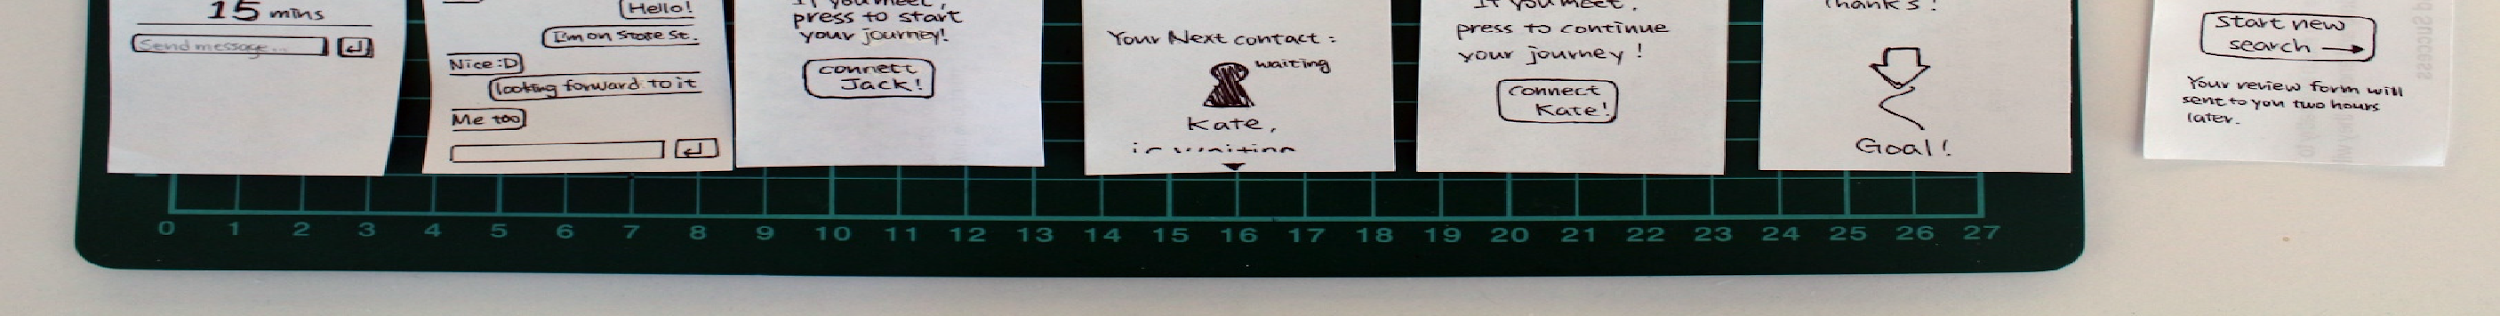 15 mins
Send message...
Hello!
I'm on State St.
Nice :D
looking forward to it
Me too
If you meet,
press to start
your journey!
connect
Jack!
Your Next contact :
waiting
Kate,
If you meet,
press to continue
your journey !
connect
Kate!
Thanks !
Goal!
start new
search
Your review form will
sent to you two hours
later.
d Success
0 1 2 3 4 5 6 7 8 9 10 11 12 13 14 15 16 17 18 19 20 21 22 23 24 25 26 27